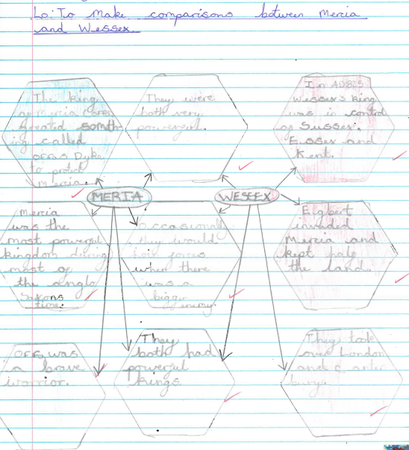 Lo: To make comparisons between Mercia
and Wessex
The king
of Mercia
created someth
ing called
offas Dyke
to protect
Mercia.
They were
both very
powerful.
In AD825
Wessex's king
was in control
of Sussex,
Essex and
Kent.
MERIA
WESSEX
Mercia
was the
most powerful
kingdom during
most of
the anglo
Saxons
time.
occasionaly
they would
join forces
when there
was a
bigger
enemy.
Egbert
invaded
Mercia and
kept
the land.
Offa was
a brave
warrior.
They
both had
powerful
Kings
They took
over London
and